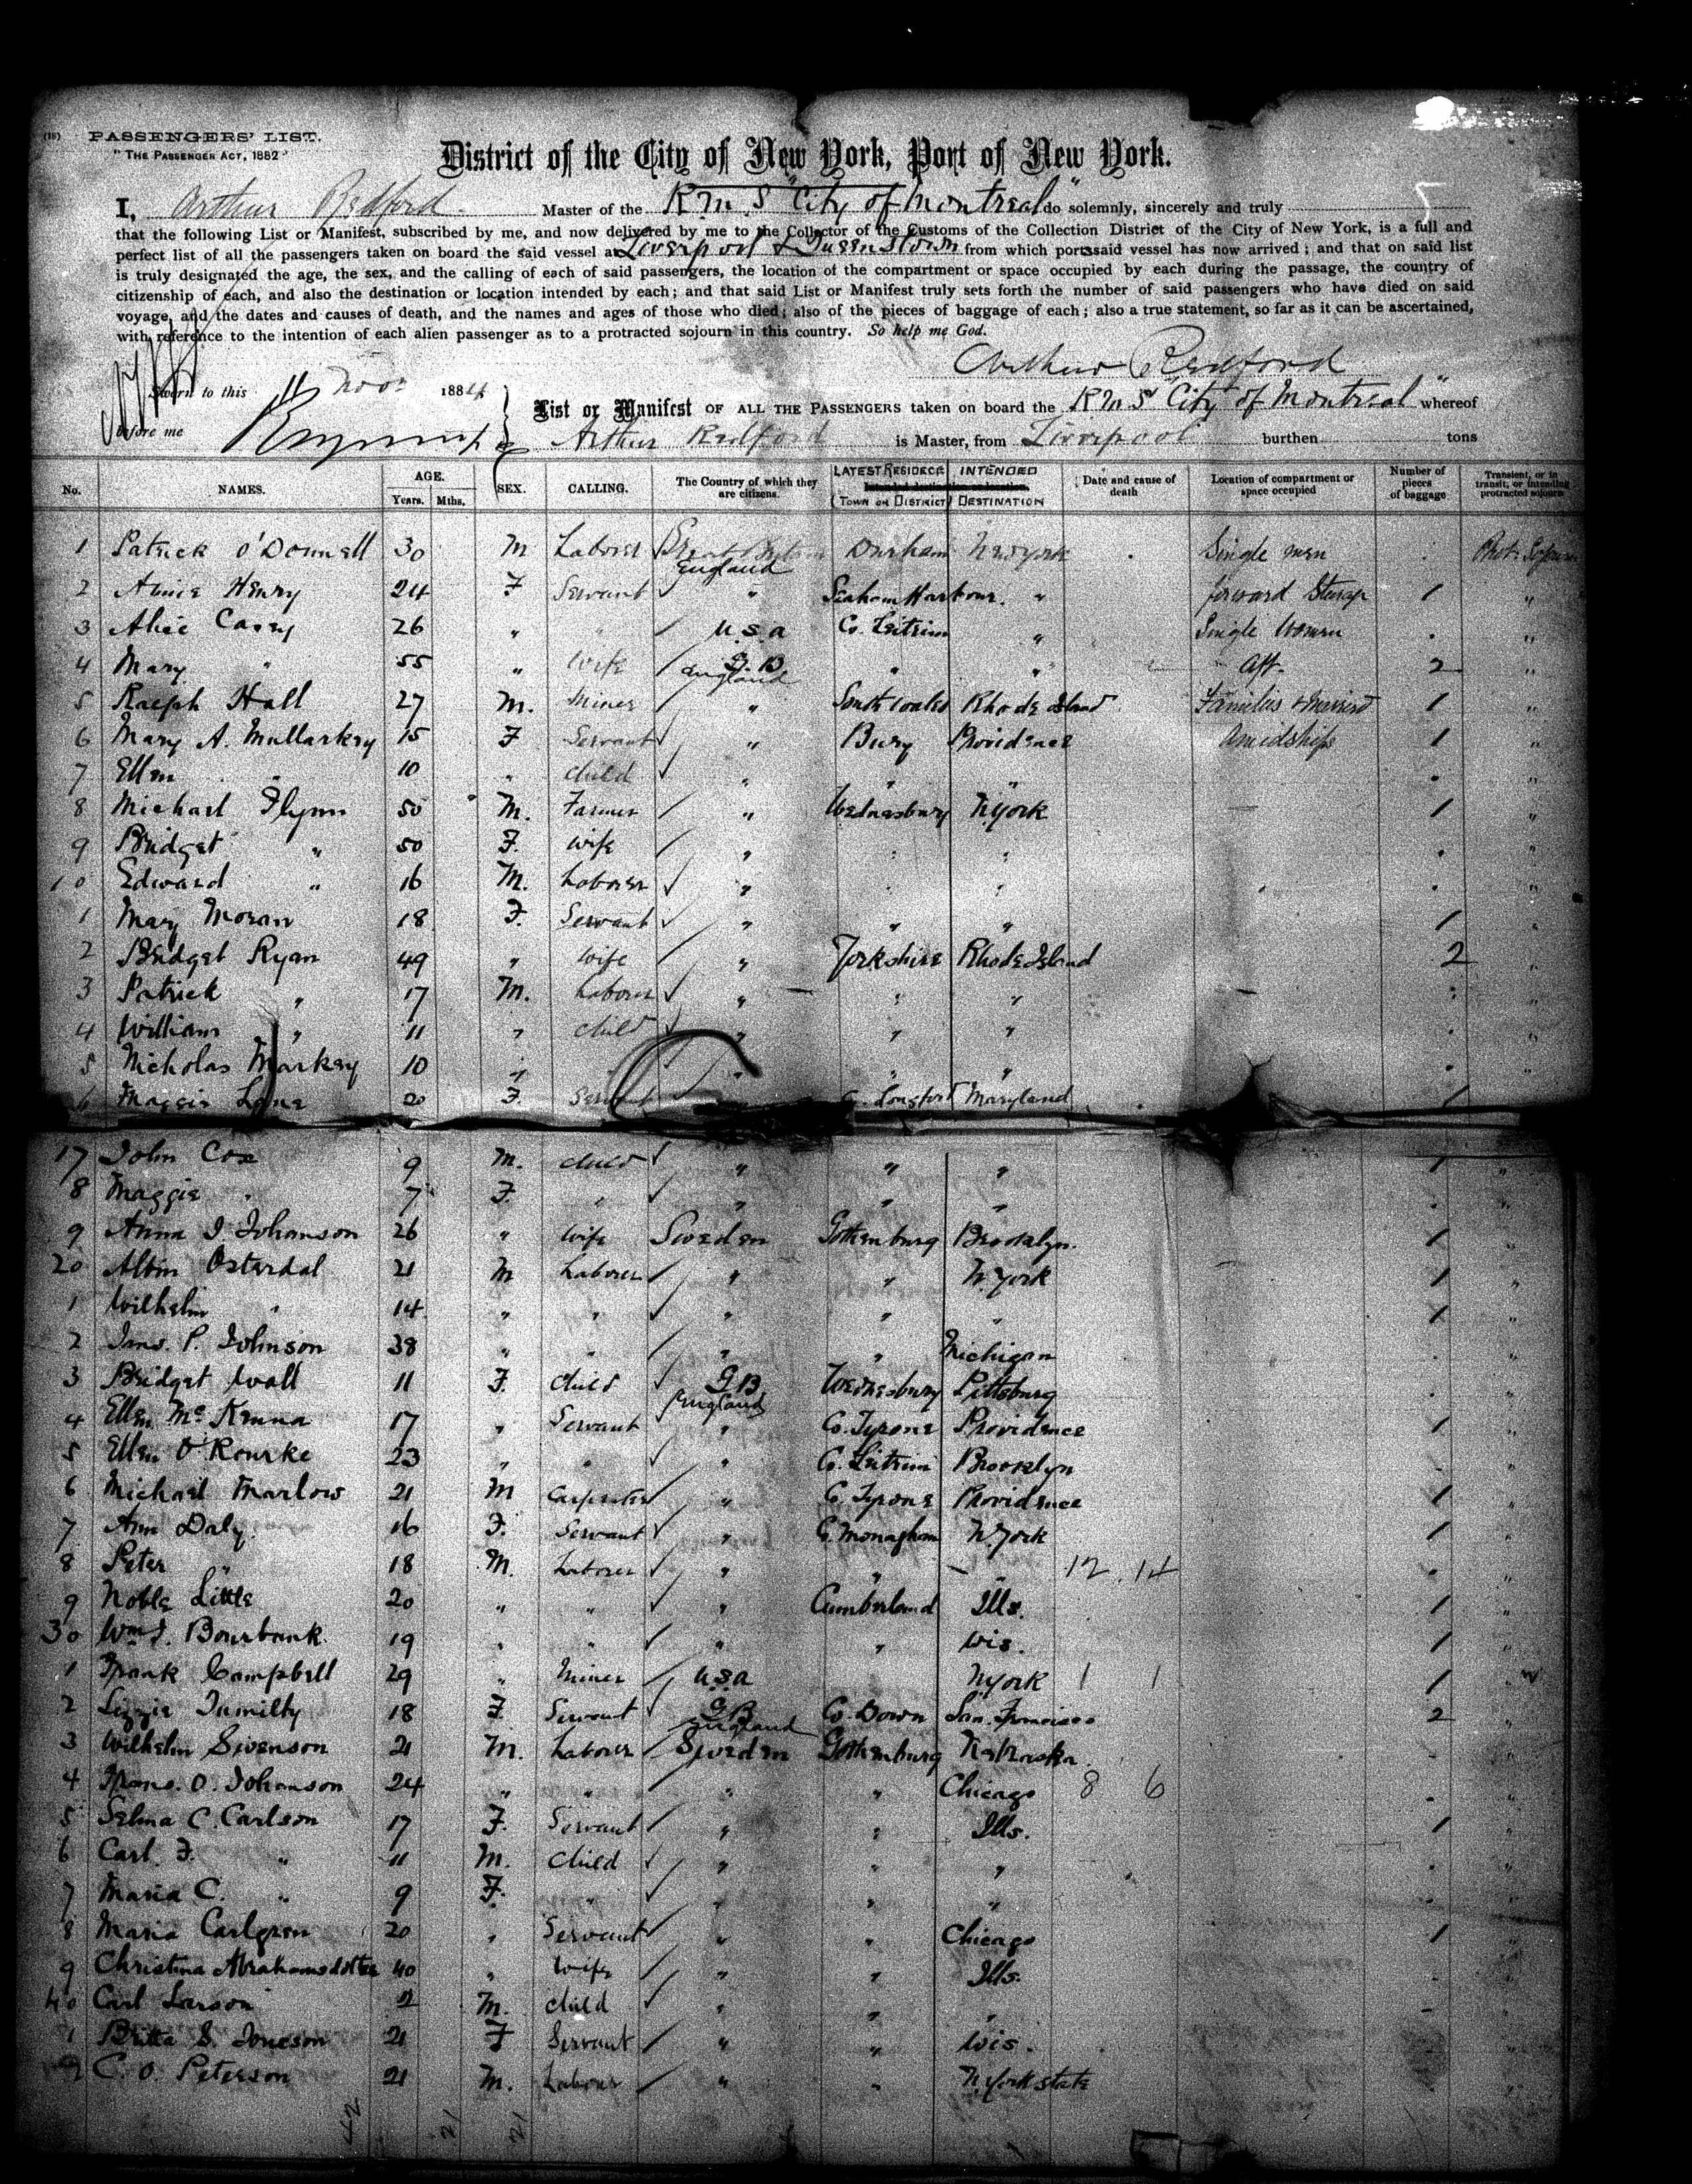 (18) PASSENGERS' LIST.
"THE PASSENGER ACT, 1882"
District of the City of New York, Port of New York.
5
I, Arthur Redford Master of the R.M.S "City of Montreal" do solemnly, sincerely and truly
that the following List or Manifest, subscribed by me, and now delivered by me to the Collector of the Customs of the Collection District of the City of New York, is a full and
perfect list of all the passengers taken on board the said vessel at Liverpool & Queenstown from which ports said vessel has now arrived; and that on said list
is truly designated the age, the sex, and the calling of each of said passengers, the location of the compartment or space occupied by each during the passage, the country of
citizenship of each, and also the destination or location intended by each; and that said List or Manifest truly sets forth the number of said passengers who have died on said
voyage, and the dates and causes of death, and the names and ages of those who died; also of the pieces of baggage of each; also a true statement, so far as it can be ascertained,
with reference to the intention of each alien passenger as to a protracted sojourn in this country. So help me God.
Arthur Redford
Sworn to this Nov 1884
before me
List or Manifest OF ALL THE PASSENGERS taken on board the R M S "City of Montreal" whereof
Arthur Redford is Master, from Liverpool burthen tons
No. NAMES. AGE. Years. Mths. SEX. CALLING. The Country of which they are citizens. LATEST RESIDECE (TOWN OR DISTRICT) Intended destination or location. INTENDED DESTINATION Date and cause of death Location of compartment or space occupied Number of pieces of baggage Transient, or in transit, or intending protracted sojourn
1 Patrick O'Donnell 30 M Laborer Great Britain England Durham New York Single men
2 Annie Henry 24 F Servant " Seaham Harbour. " forward Steerage 1 "
3 Alice Casey 26 " " U.S.A Co. Leitrim " Single Women "
4 Mary " 55 " Wife G.B England " " Aft. 2 "
5 Ralph Hall 27 M. Miner " South Wales Rhode Island Families & Married 1 "
6 Mary A. Mullarkey 15 F Servant " Bury Providence Amidships 1 "
7 Ellen " 10 " child " " " "
8 Michael Flynn 50 M. Farmer " Wednesbury N. York 1 "
9 Bridget " 50 F. Wife " " " "
10 Edward " 16 M. Laborer " " " "
1 Mary Moran 18 F. Servant " " " 1 "
2 Bridget Ryan 49 " Wife " Yorkshire Rhode Island 2 "
3 Patrick " 17 M. Laborer " " " "
4 William " 11 " child " " " "
5 Nicholas Markey 10 " " " " "
6 Maggie Lane 20 F. Servant " Co. Longford Maryland 1
17 John Cox 9 M. child " " " 1 "
8 Maggie " 7 F. " " " " "
9 Anna I. Johanson 26 " Wife Sweden Gothenburg Brooklyn. 1 "
20 Albin Osterdal 21 M Laborer " " N. York 1 "
1 Wilhelm " 14 " " " " " 1 "
2 Jno. P. Johnson 38 " " " " Michigan "
3 Bridget Wall 11 F. child G.B England Wednesbury Pittsburg "
4 Ellen McKenna 17 " Servant " Co. Tyrone Providence 1 "
5 Ellen O'Rourke 23 " " " Co. Leitrim Brooklyn "
6 Michael Marlow 21 M Carpenter " C. Tyrone Providence 1 "
7 Ann Daly 16 F. Servant " C. Monaghan N. York 1 "
8 Peter " 18 M. Laborer " " " 12 14 "
9 Noble Little 20 " " " Cumberland Ills. 1 "
30 Wm J. Bourbank 19 " " " " Wis. 1 "
1 Frank Campbell 29 " Miner U.S.A N. York 1 1 1 "
2 Lizzie Tumilty 18 F. Servant G.B England Co. Down San. Francisco 2 "
3 Wilhelm Swenson 21 M. Laborer Sweden Gothenburg Nebraska. "
4 Frans. O. Johanson 24 " " " " Chicago 8 6 "
5 Selma C. Carlson 17 F. Servant " " Ills. 1 "
6 Carl F. " 11 M. Child " " " "
7 Maria C. " 9 F. " " " " "
8 Maria Carlgren 20 " Servant " " Chicago 1 "
9 Christina Abrahamsdotter 40 " Wife " " Ills. "
40 Carl Larson 2 M. child " " " "
1 Britta S. Joneson 21 F Servant " " Wis. "
2 C. O. Peterson 21 M. Labour " " N. York state
42 21 21